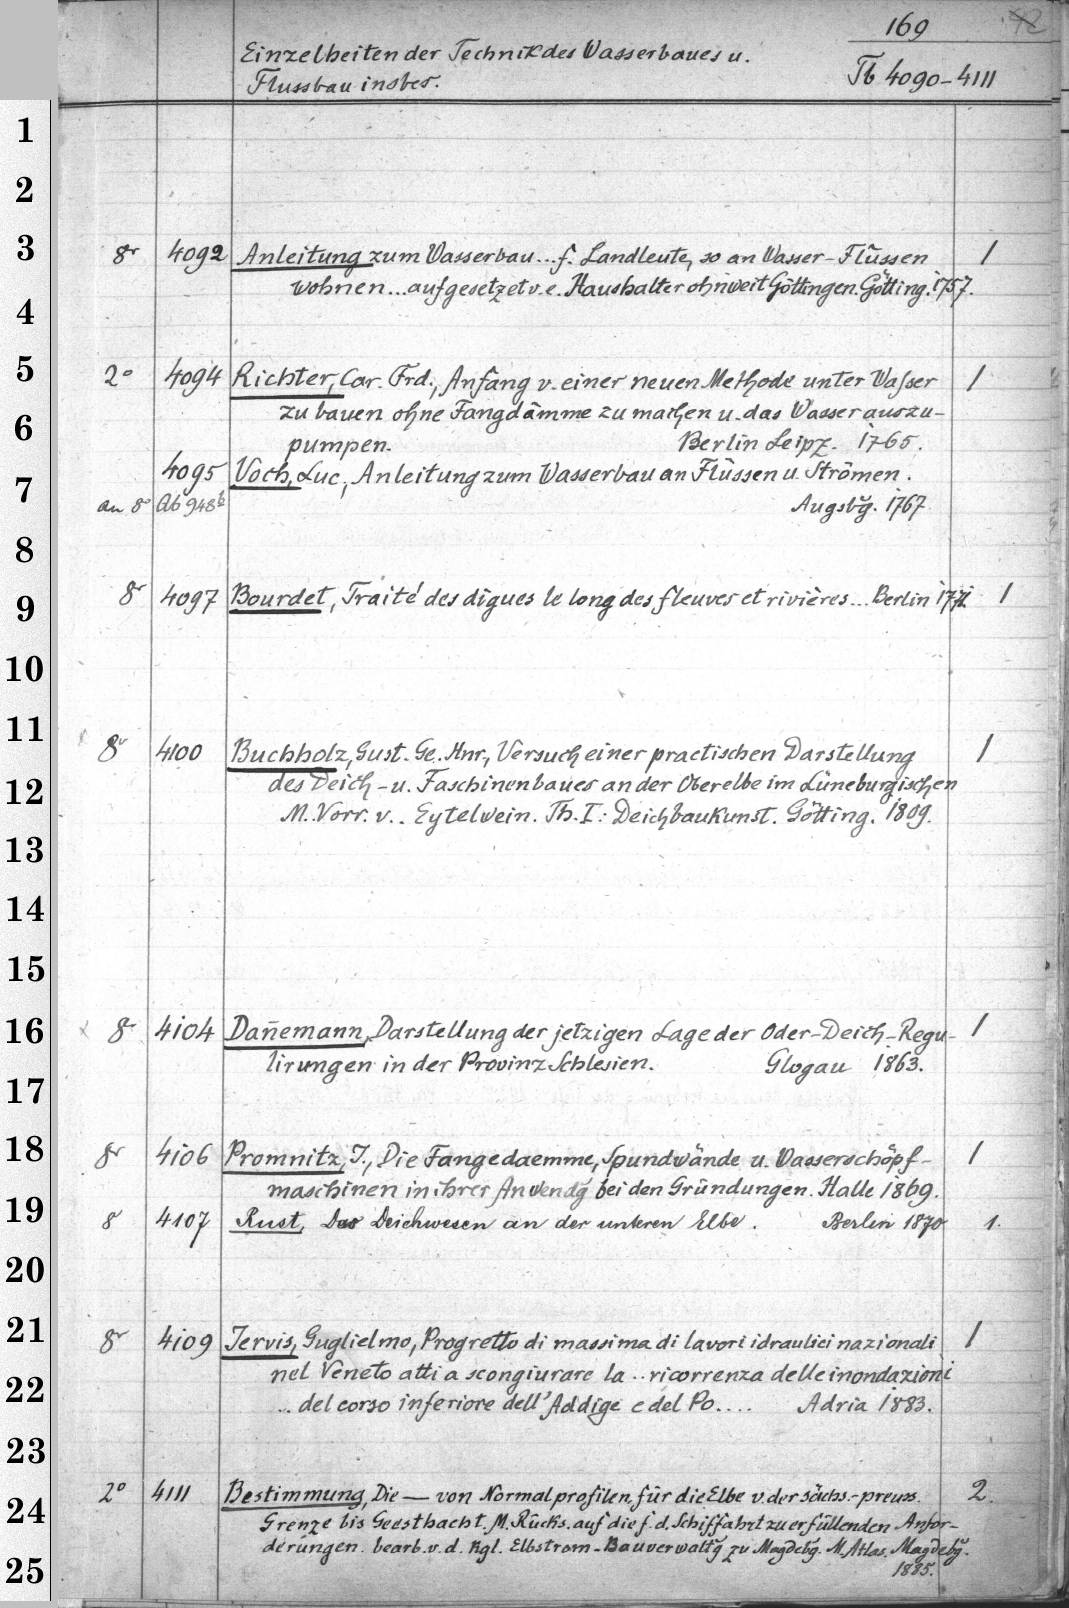 169 42
Einzelheiten der Technik des Wasserbaues u.
Flussbau insbes.
Tb 4090-4111
1
2
3
8r 4092 Anleitung zum Wasserbau...f. Landleute, so an Wasser-Flüssen 1
wohnen...aufgesetzet v. e. Haushalter ohnweit Göttingen. Götting. 1757.
4
5
2° 4094 Richter, Car. Frd., Anfang v. einer neuen Methode unter Wasser 1
zu bauen ohne Fangdämme zu machen u. das Wasser auszu-
6
pumpen. Berlin Leipz. 1765.
4095 Voch, Luc, Anleitung zum Wasserbau an Flüssen u. Strömen.
7
an 8° Ab 948b Augsbg. 1767
8
8r 4097 Bourdet, Traité des digues le long des fleuves et rivières... Berlin 1
9
10
11
8r 4100 Buchholz, Gust. Ge. Hnr., Versuch einer practischen Darstellung 1
des Deich-u. Faschinenbaues an der Oberelbe im Lüneburgischen
12
M. Vorr. v. . Eytelwein. Th. I: Deichbaukunst. Götting. 1809.
13
14
15
16
8r 4104 Dañemann, Darstellung der jetzigen Lage der Oder-Deich-Regu- 1
lirungen in der Provinz Schlesien. Glogau 1863.
17
18
8r 4106 Promnitz, J., Die Fangedaemme, Spundwände u. Wasserschöpf- 1
maschinen in ihrer Anwendg bei den Gründungen. Halle 1869.
19
8 4107 Rust, Das Deichwesen an der unteren Elbe. Berlin 1870 1.
20
21
8r 4109 Jervis, Guglielmo, Progretto di massima di lavori idraulici nazionali 1
nel Veneto atti a scongiurare la .. ricorrenza delle inondazioni
22
... del corso inferiore dell' Addige e del Po.... Adria 1883.
23
24
2° 4111 Bestimmung, Die — von Normalprofilen für die Elbe v. der sächs.-preuss. 2.
Grenze bis Geesthacht. M. Rücks. auf die f. d. Schiffahrt zu erfüllenden Anfor-
derungen. bearb. v. d. Kgl. Elbstrom-Bauverwaltg zu Magdebg. M. Atlas. Magdebg.
25
1885.